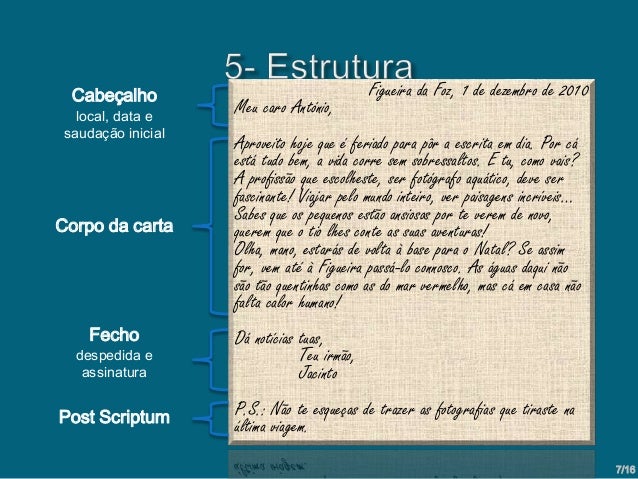 5- Estrutura
Cabeçalho
local, data e
saudação inicial
Figueira da Foz, 1 de dezembro de 2010
Meu caro António,
Aproveito hoje que é feriado para pôr a escrita em dia. Por cá
está tudo bem, a vida corre sem sobressaltos. E tu, como vais?
A profissão que escolheste, ser fotógrafo aquático, deve ser
fascinante! Viajar pelo mundo inteiro, ver paisagens incríveis...
Sabes que os pequenos estão ansiosos por te verem de novo,
querem que o tio lhes conte as suas aventuras!
Olha, mano, estarás de volta à base para o Natal? Se assim
for, vem até à Figueira passá-lo connosco. As águas daqui não
são tão quentinhas como as do mar vermelho, mas cá em casa não
falta calor humano!
Corpo da carta
Fecho
despedida e
assinatura
Dá notícias tuas,
Teu irmão,
Jacinto
Post Scriptum
P.S.: Não te esqueças de trazer as fotografias que tiraste na
última viagem.
7/16